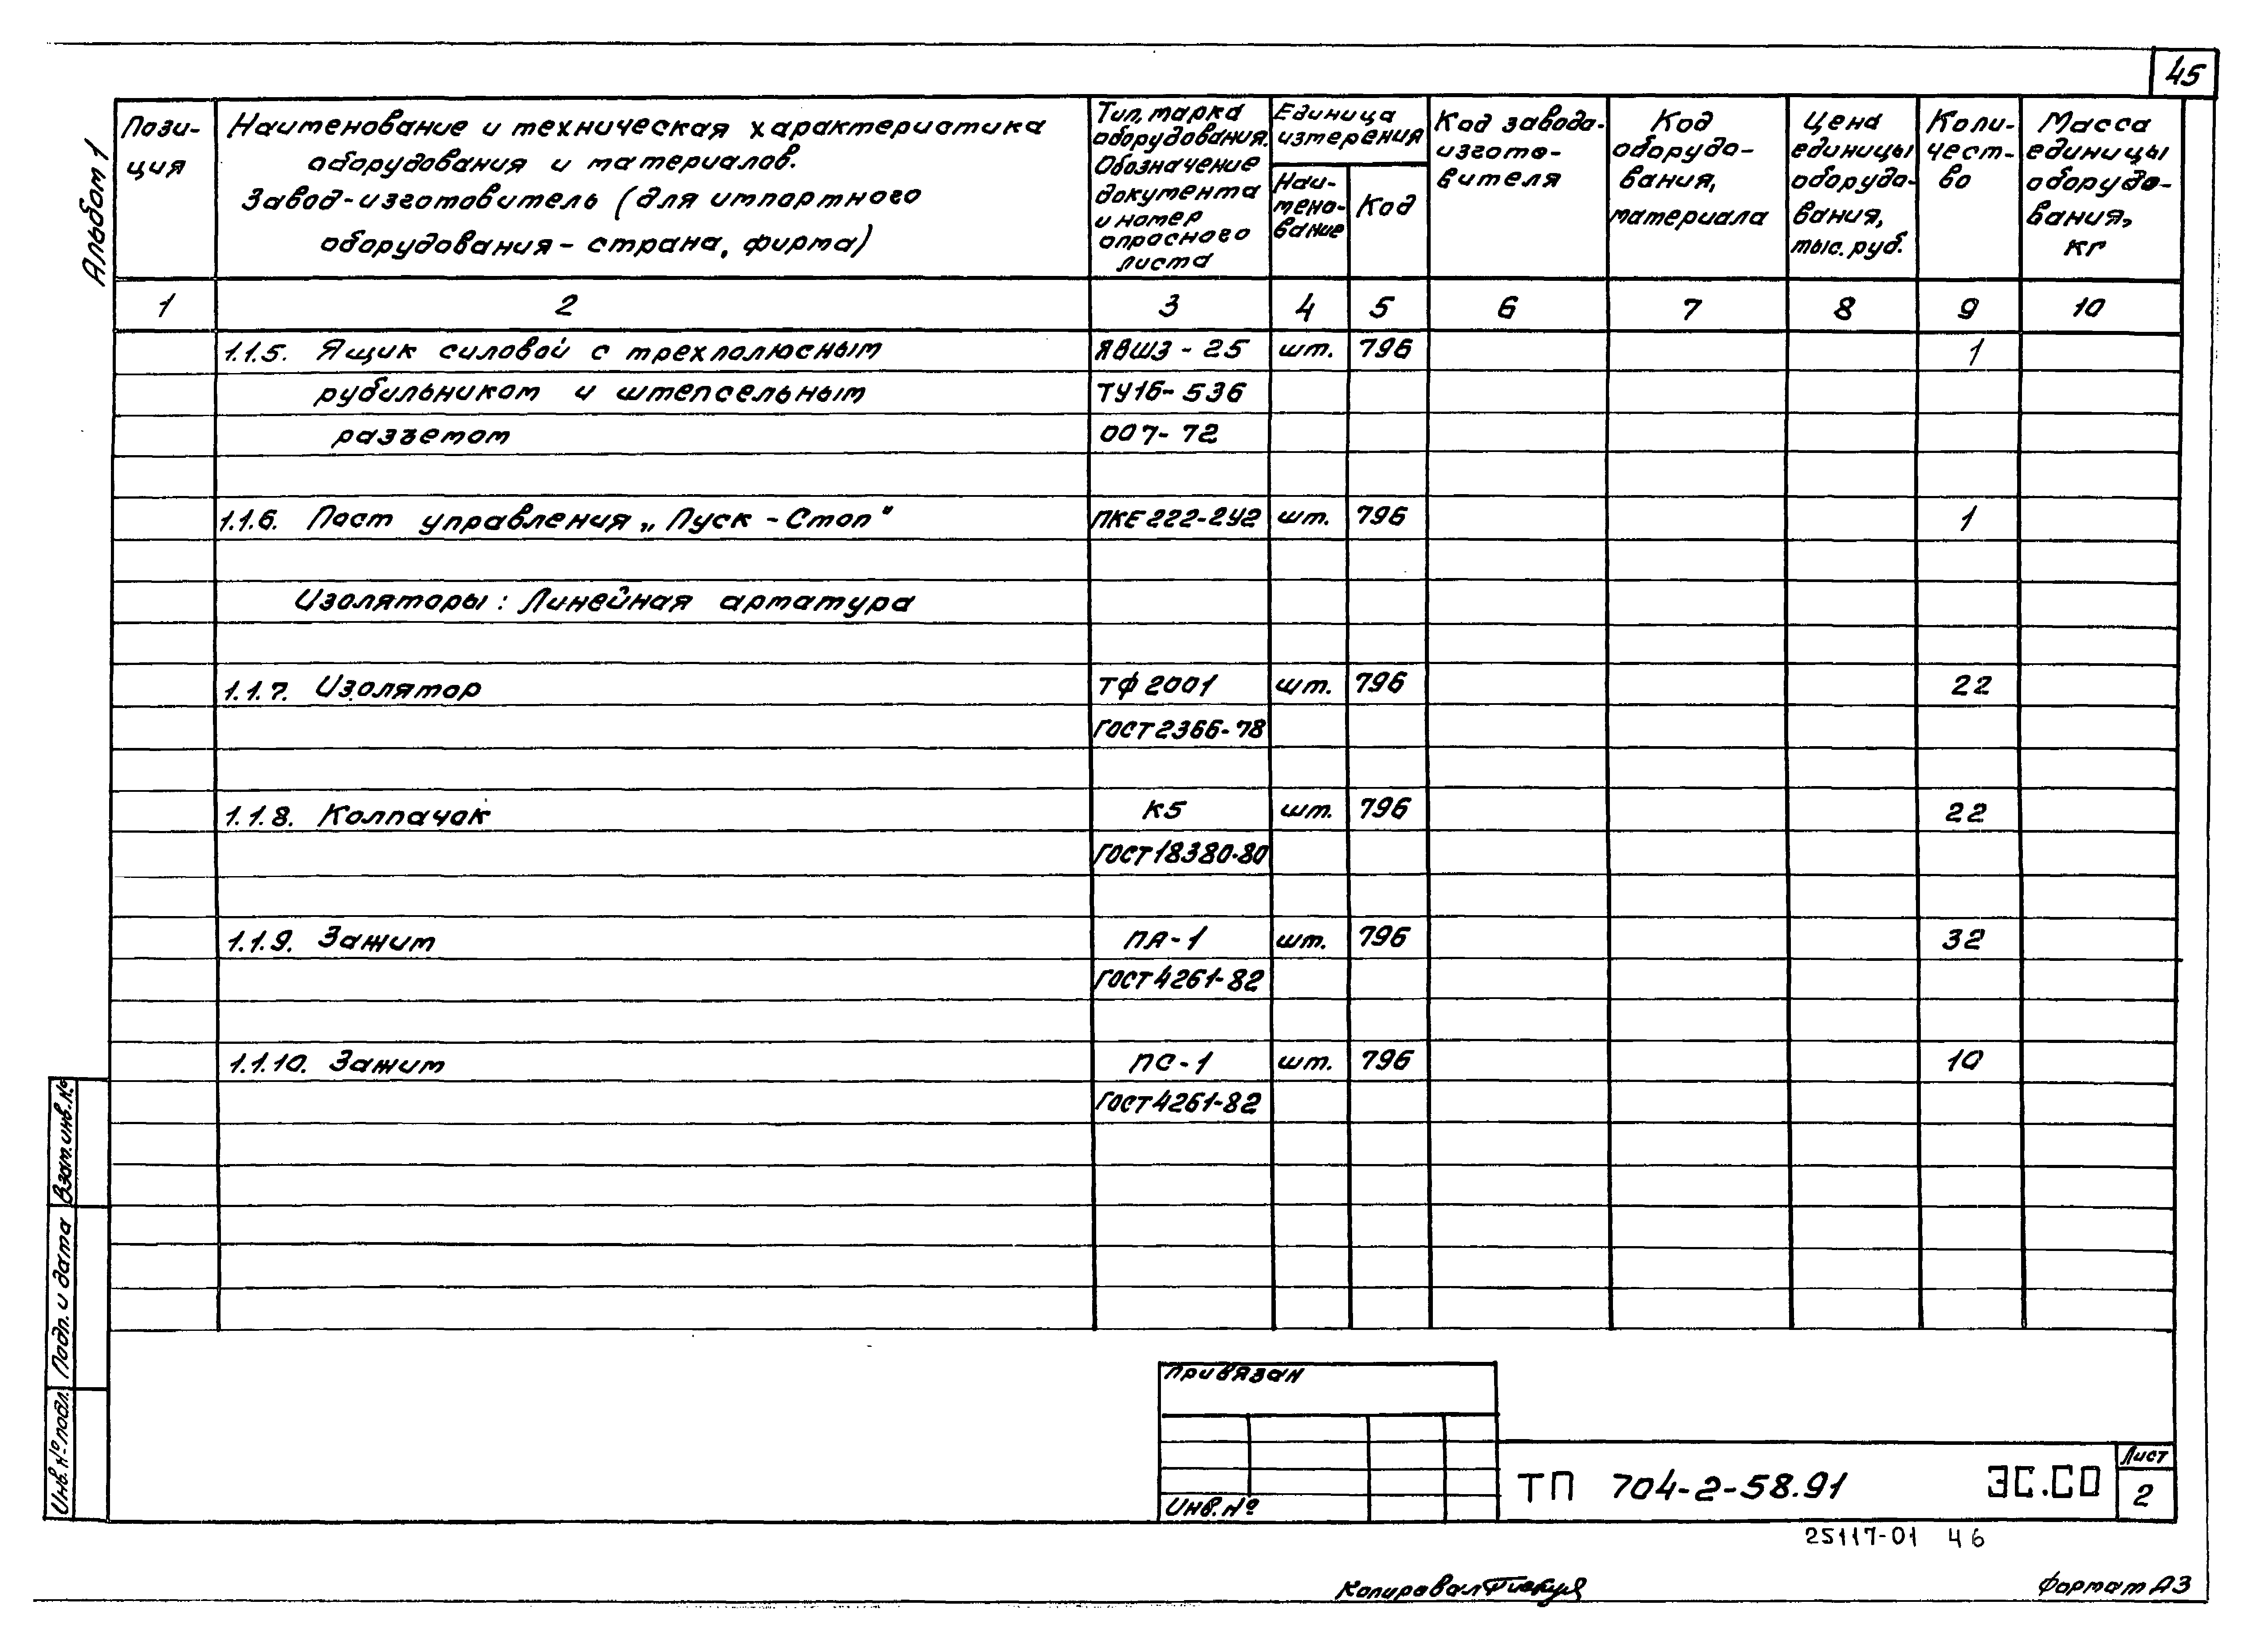 45
Альбом 1
Пози-
ция
Наименование и техническая характеристика
оборудования и материалов.
Завод-изготовитель (для импортного
оборудования - страна, фирма)
Тип, марка
оборудования.
Обозначение
документа
и номер
опросного
листа
Единица
измерения
Наи-
мено-
вание
Код
Код завода-
изгото-
вителя
Код
оборудо-
вания,
материала
Цена
единицы
оборудо-
вания,
тыс. руб.
Коли-
чест-
во
Масса
единицы
оборудо-
вания,
кг
1 2 3 4 5 6 7 8 9 10
1.1.5. Ящик силовой с трехполюсным ЯВШ3 - 25 шт. 796 1
рубильником и штепсельным ТУ16- 536
разъемом 007- 72
1.1.6. Пост управления „ Пуск - Стоп" ПКЕ 222-2У2 шт. 796 1
Изоляторы : Линейная арматура
1.1.7. Изолятор ТФ 2001 шт. 796 22
ГОСТ 2366-78
1.1.8. Колпачок К5 шт. 796 22
ГОСТ 18380-80
1.1.9. Зажим ПА-1 шт. 796 32
ГОСТ 4261-82
1.1.10. Зажим ПС-1 шт. 796 10
ГОСТ 4261-82
Взам. инв. №
Подп. и дата
Инв. № подл.
Привязан
Инв. №
ТП 704-2-58.91 ЭС.СО
Лист
2
25117-01 46
Копировал
Формат А3